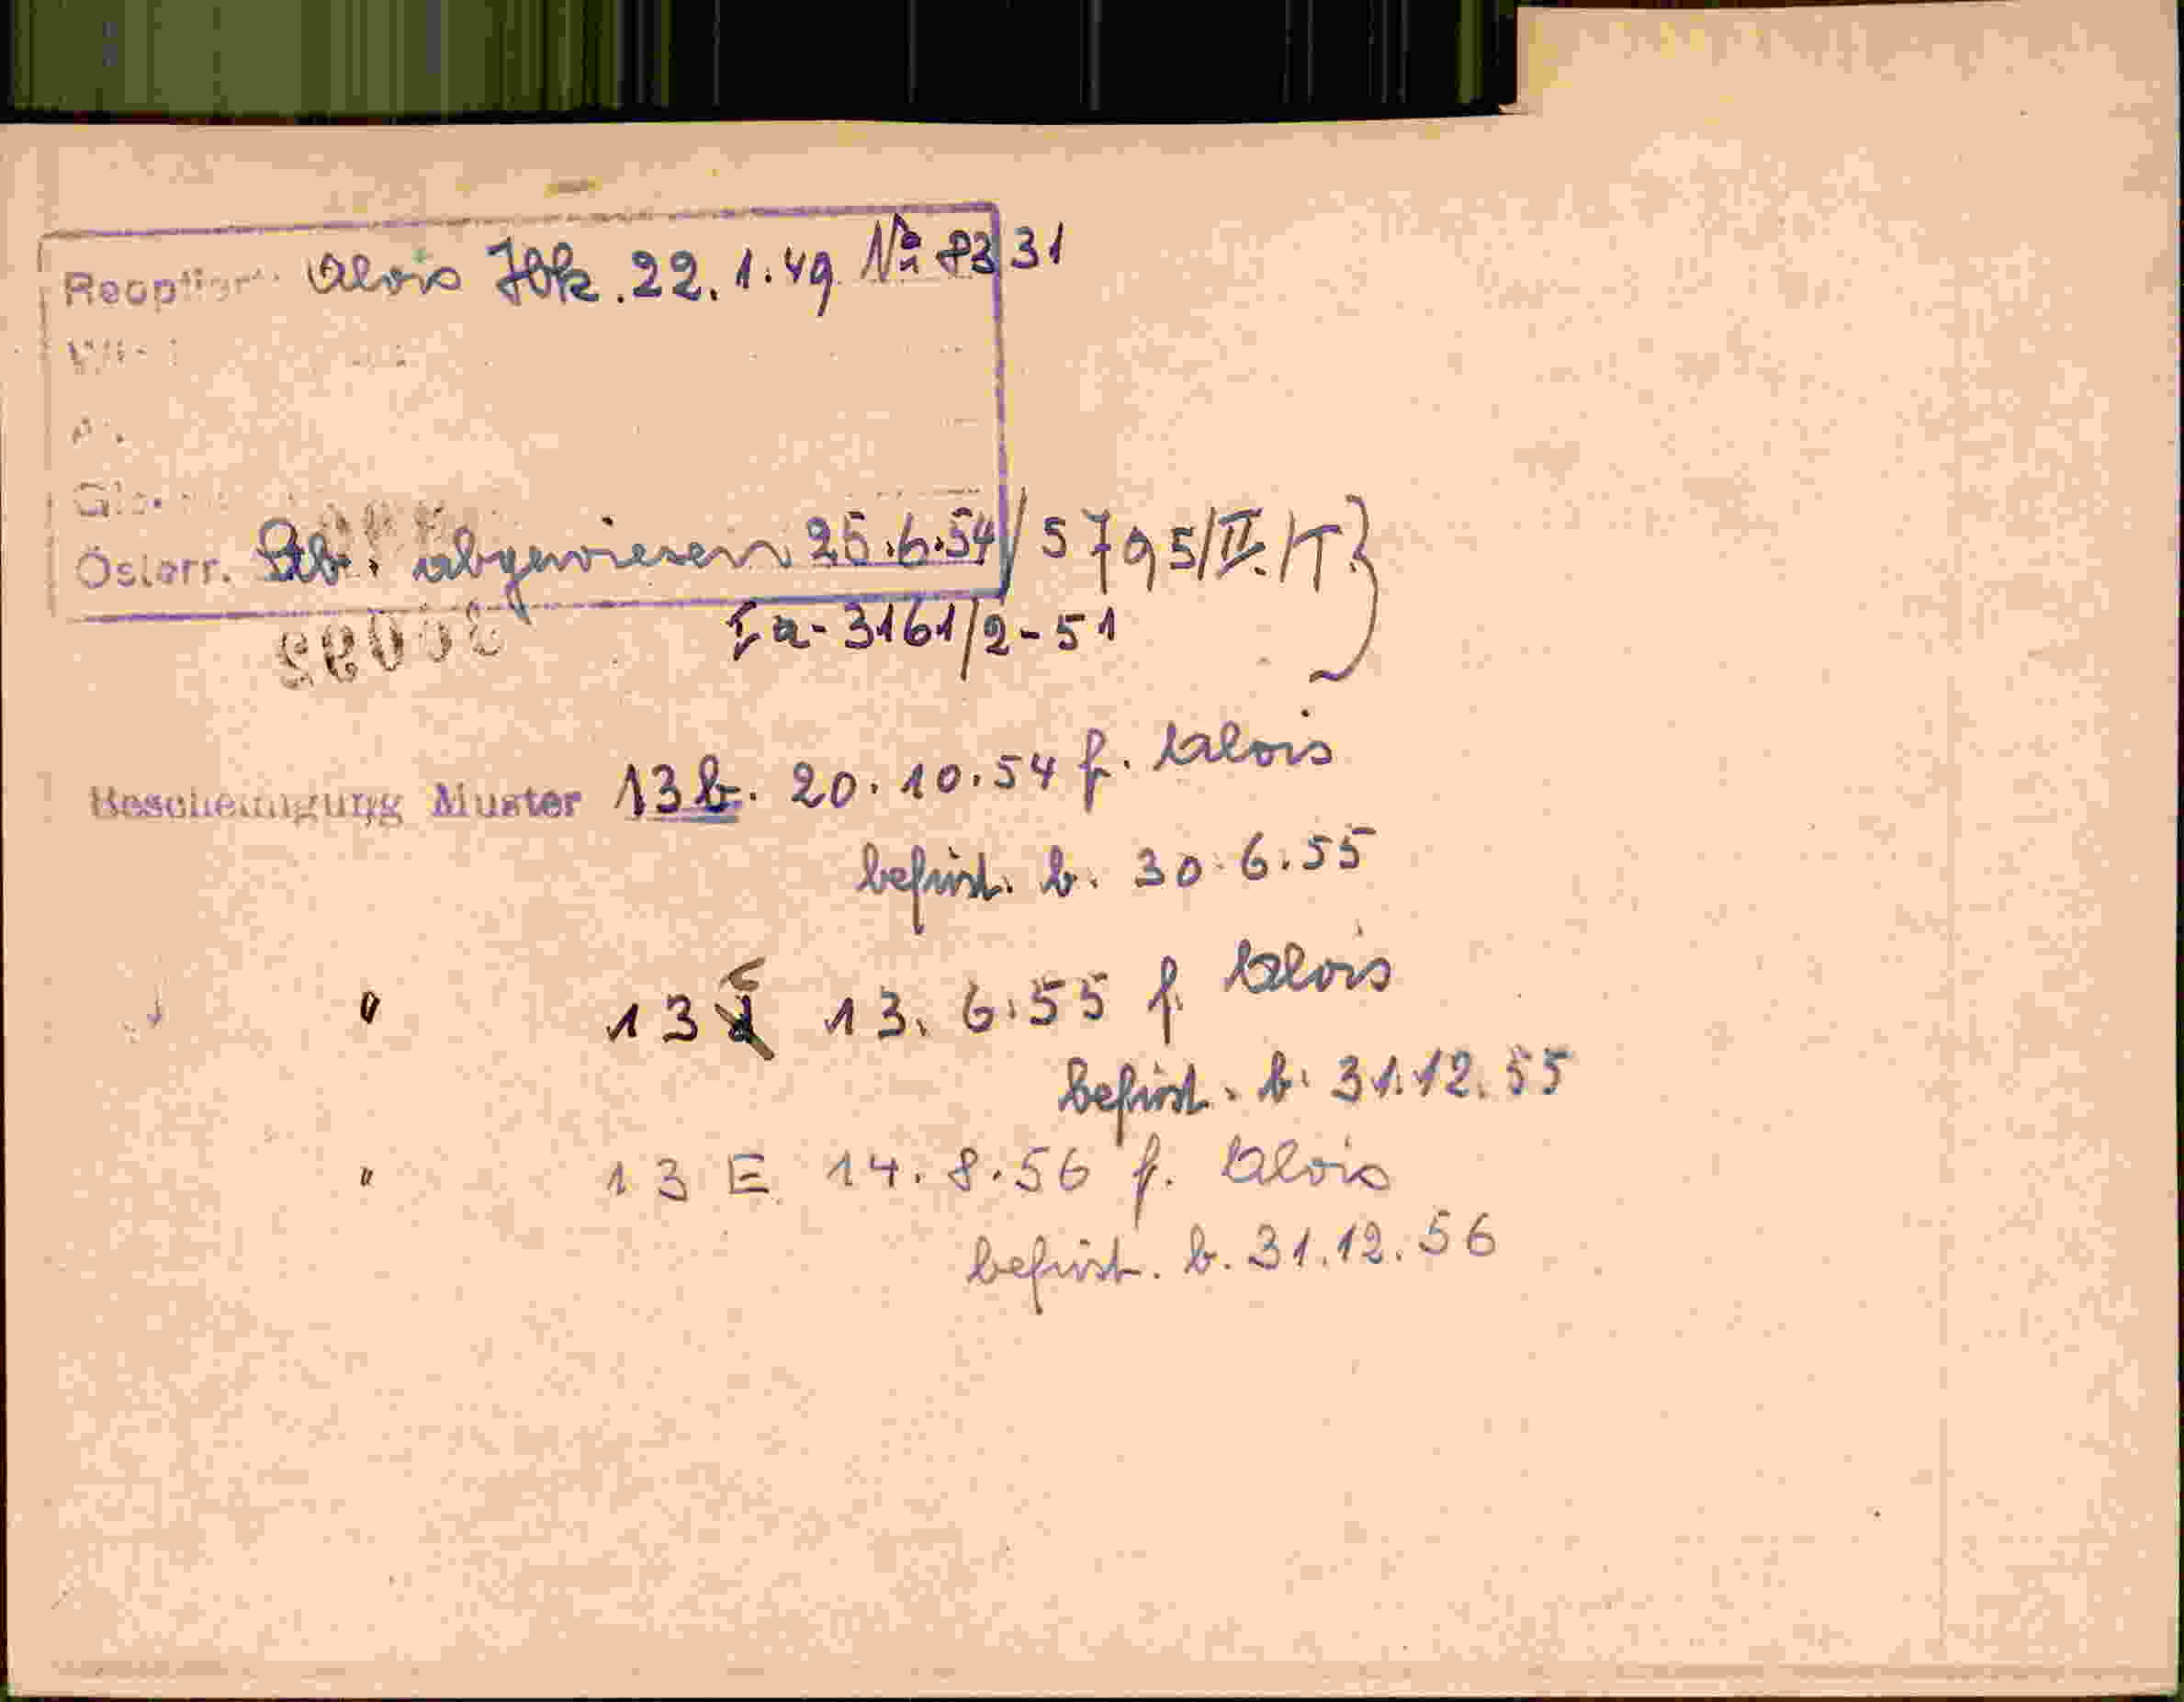 Reoption: Alois 22.1.49 № 8331
Österr. Stb. abgewiesen 25.6.54 / 5795/II./T}
Ia-3161/2-51
Bescheinigung Muster 13b. 20.10.54 f. Alois
befrist. b. 30.6.55
" 13 13.6.55 f. Alois
befrist. b. 31.12.55
" 13 E 14.8.56 f. Alois
befrist. b. 31.12.56